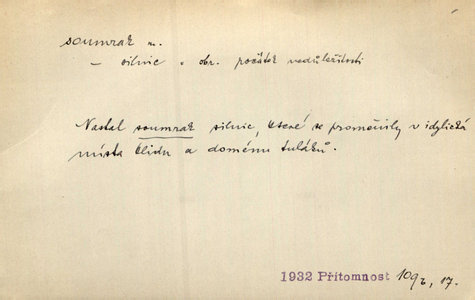 soumrak m.
– silnic = obr. počátek nedůležitosti
Nastal soumrak silnic, které se proměnily v idylická
místa klidu a doménu tuláků.
1932 Přítomnost 109, 17.